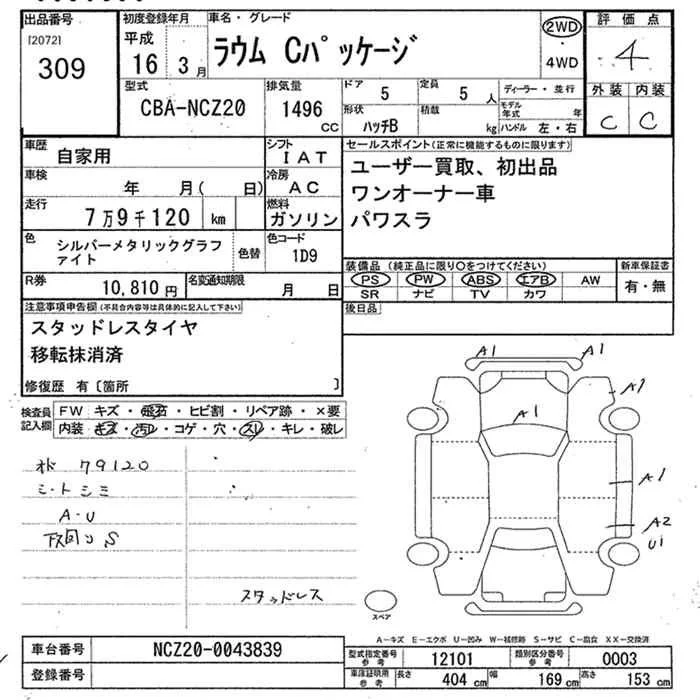 出品番号 初度登録年月 車名・グレード 評価点
[2072] 309 平成 16 3月 ラウム Cパッケージ 2WD 4WD 4
型式 排気量 ドア 5 定員 5人 ディーラー・並行 外装 内装
CBA-NCZ20 1496 CC 形状 ハッチB 積載 kg モデル年式 年 ハンドル 左・右 C C
車歴 自家用 シフト IAT セールスポイント(正常に機能するものに限ります)
車検 年 月( 日) 冷房 AC ユーザー買取、初出品
走行 7万9千120 km 燃料 ガソリン ワンオーナー車
パワスラ
色 シルバーメタリックグラファイト 色替 色コード 1D9
装備品(純正品に限り○をつけてください) 新車保証書
R券 10,810円 名変通知期限 月 日 PS PW ABS エアB AW 有・無
SR ナビ TV カワ
注意事項申告欄(不具合内容等は具体的に記入して下さい) 後日品
スタッドレスタイヤ
移転抹消済
修復歴 有〔箇所 〕
検査員記入欄 FW キズ・飛石・ヒビ割・リペア跡・×要
内装 キズ・汚れ・コゲ・穴・スレ・キレ・破レ
A1 A1
A1
A1
A1
A2
U1
79120
シートシミ
A・U
スタッドレス
スペア
A-キズ E-エクボ U-凹み W-補修跡 S-サビ C-腐食 XX-交換済
車台番号 NCZ20-0043839 型式指定番号 参考 12101 類別区分番号 参考 0003
登録番号 車庫証明用 参考 長さ 404 cm 幅 169 cm 高さ 153 cm